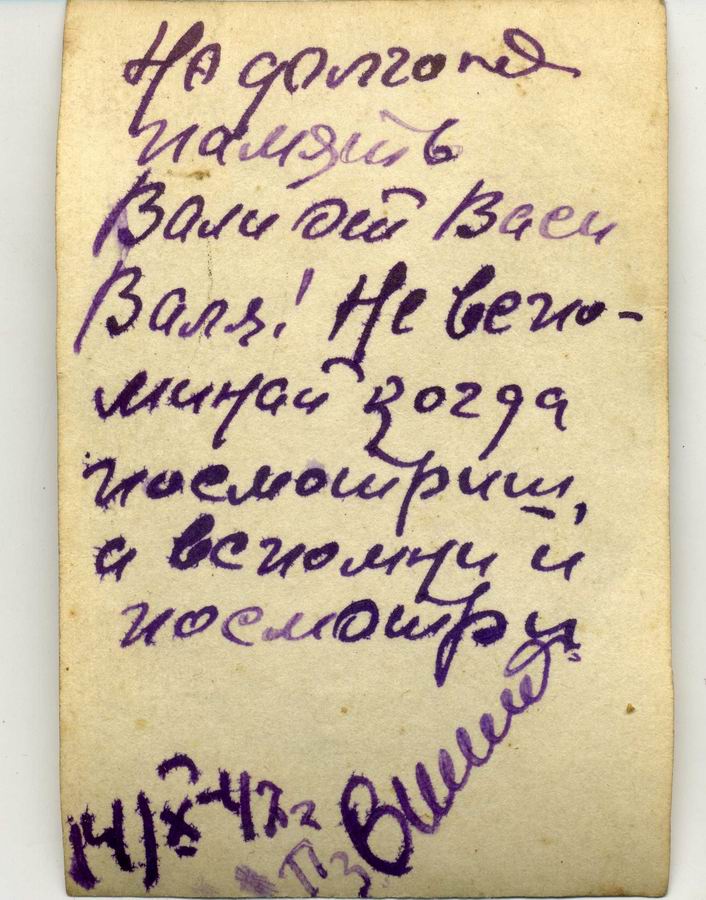 На долгопей
память
Вали от Васи
Валя! Не вспо-
минай когда
посмотриш,
а вспомни и
посмотри
14/X-47г